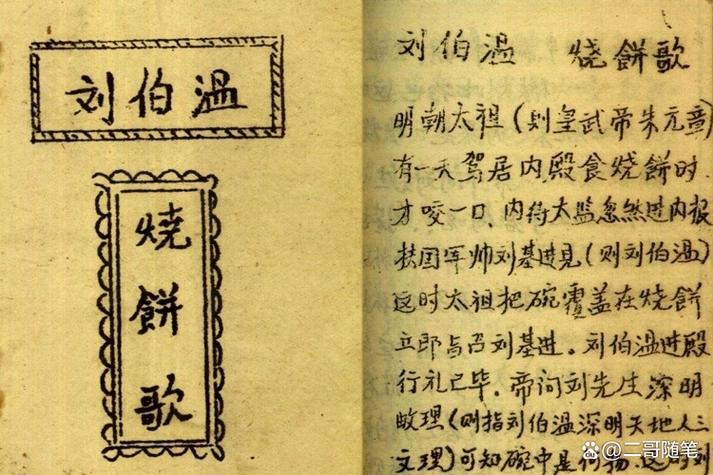 刘伯温
烧餅歌
刘伯温 烧餅歌
明朝太祖(则皇武帝朱元章)
有一天驾居内殿食烧餅时.
才咬一口、内侍太监忽然进内报
扶国军帅刘基进見(则刘伯温)
这时太祖把碗覆盖在烧餅
立即与召刘基进。刘伯温进殿
行礼已毕.帝问刘先生深明
敀理(则指刘伯温深明天地人三
文理)可知碗中是何物.
@二哥随笔